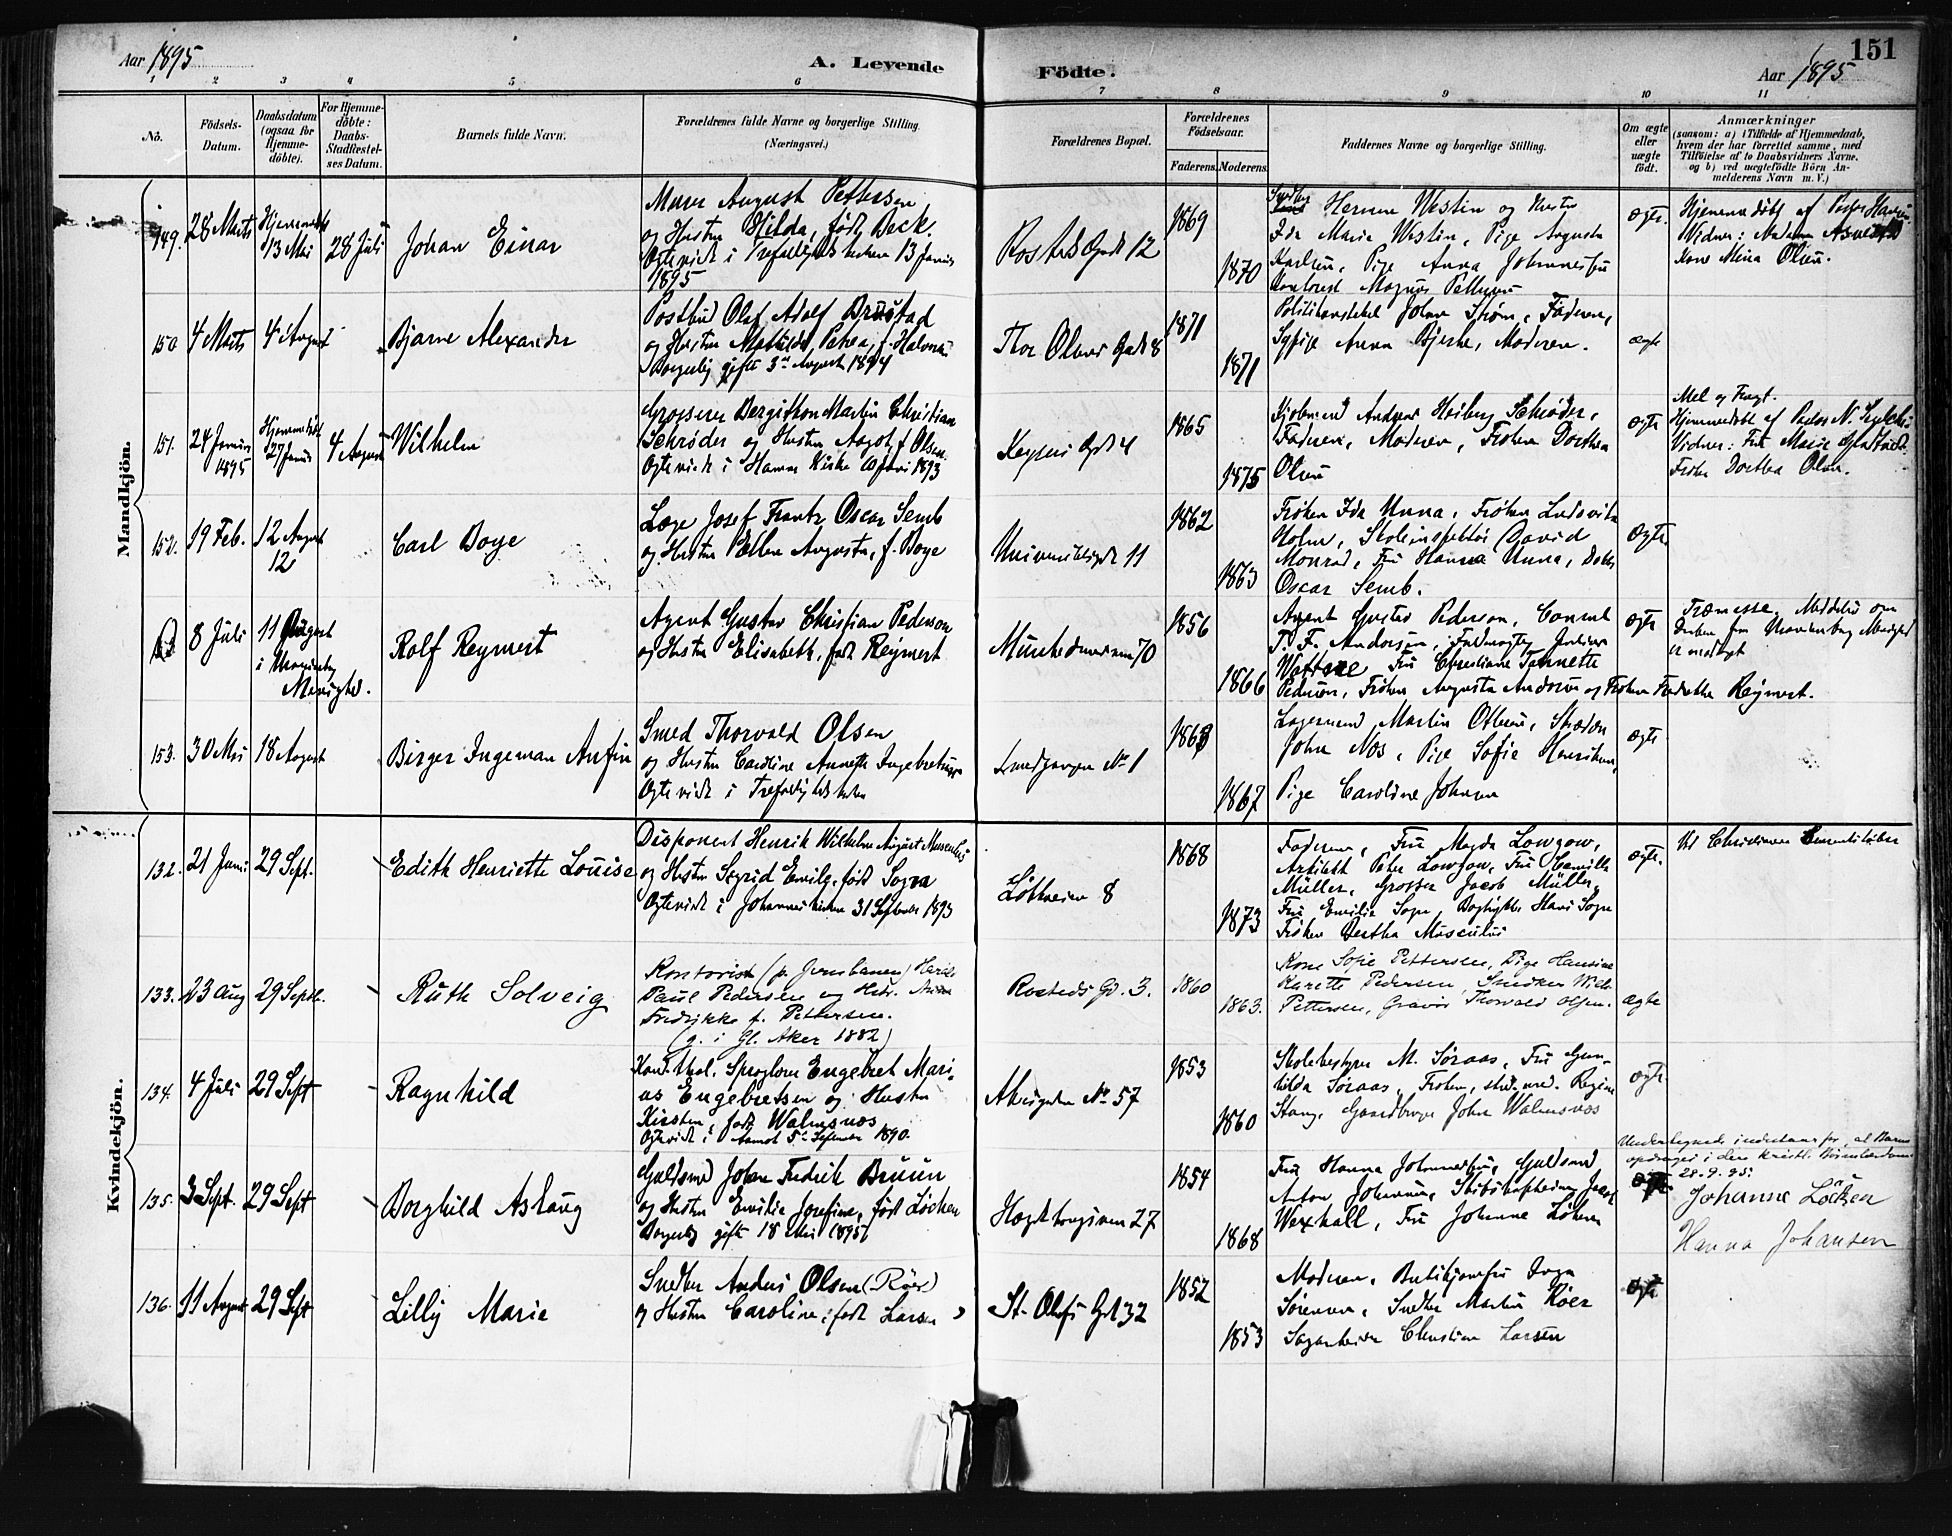 Aar 1895
A. Levende
Födte.
151
Aar 1895
1 2 3 4 5 6 7 8 9 10 11
No.
Födsels-
Datum.
Daabsdatum
(ogsaa for
Hjemme-
döbte).
For Hjemme-
döbte:
Daabs-
Stadfæstel-
ses Datum.
Barnets fulde Navn.
Forældrenes fulde Navne og borgerlige Stilling.
(Næringsvei.)
Forældrenes Bopæl.
Forældrenes
Födselsaar.
Faderens.
Moderens.
Faddernes Navne og borgerlige Stilling.
Om ægte
eller
uægte
födt.
Anmærkninger
(saasom: a) i Tilfælde af Hjemmedaab,
hvem der har forrettet samme, med
Tilföielse af to Daabsvidners Navne,
og b) ved uægtefödte Börn An-
melderens Navn m. V.)
Mandkjön.
149.
28 Marts
Hjemmedøbt
13 Mai
28 Juli
Johan Einar
Murer August Pettersen
og Hustru Hilda, født Beck.
Ægteviede i Trefoldighedskirken 13 Januar
1895
Rosteds Gade 12
1869
1870
Herman Westin og Hustru
Ida Marie Westin, Pige Augusta
Karlsen, Pige Anna Johannesen
Magnus Pettersen
ægte.
Hjemmedøbt af Pastor
Vidner: Madam
Kone Mina Olsen.
150
4 Marts
4 August
Bjarne Alexander
Postbud Olaf Adolf Brustad
og Hustru Mathilde Petrea, f. Halvorsen
Borgerlig gifte 3die August 1894
Thor Olsens Gade 8
1871
1871
Politikonstabel Johan Strøm, Faderen,
Sypige Anna Bjerke, Moderen.
ægte
151.
24 Januar
1895
Hjemmedøbt
27 Januar
4 August
Wilhelm
Grosserer Bergithon Martin Christian
Schrøder og Hustru Aagot, f. Olsen.
Ægteviede i Hamar Kirke 10 Juni 1893
Keysers Gade 4
1865
1875
Kjøbmand Andreas Heiberg Schrøder,
Faderen, Moderen, Frøken Dorthea
Olsen
ægte
Hjemmedøbt af Pastor N.
Vidner: Fru Marie
Frøken Dorthea Olsen.
152.
19 Feb.
12 August
12
Carl Boye
Læge Josef Frantz Oscar Semb
og Hustru Ellen Augusta, f. Boye
Universitetsgade 11
1862
1863
Frøken Ida Unna, Frøken Ludovika
Holm, Skoleinspektør David
Monrad, Fru Hanna Unna, Doktor
Oscar Semb.
Ægte.
8 Juli
11 August
i
Menighed.
Rolf Reymert
Agent Gustav Christian Pedersen
og Hustru Elisabeth, født Reymert
Munkedamsveien 70
1856
1866
Agent Gustav Pedersen, Consul
T. F. Andersen, Fuldmægtig
Fru Christiane Tannette
Pedersen, Frøken Augusta Andersen og Frøken Fredrikke Reymert.
ægte
Meddelt om
Daaben fra Uranienborg Menighed
er modtagt
153.
30 Mai
18 August
Birger Ingeman Anfin
Smed Thorvald Olsen
og Hustru Caroline Annette Ingebretsen
Ægteviede i Trefoldighedskirken
Smedgangen No 1
1863
1867
Lagermand Martin Ottesen, Skrædder
Johan Næs, Pige Sofie Henriksen,
Pige Caroline Johnsen
ægte
Kvindekjön.
132.
21 Juni
29 Sept.
Edith Henriette Louise
Disponent Henrik Wilhelm August Musculus
og Hustru Sigrid Emilg, født Sogn
Ægteviede i Johanneskirken 31 September 1893
Løkkeveien 8
1868
1873
Faderen, Fru Magda Lowzow,
Arkitekt Peter Lowzow, Fru Camilla
Müller, Grosserer Jacob Müller,
Fru Emilie Sogn, Bogtrykker Hans Sogn
Frøken Bertha Musculus
ægte.
133.
23 Aug
29 Septe.
Ruth Solveig
Kontorist (p. Jernbanen) Harald
Paul Pedersen og Hustr.
Fredrikke f. Pettersen.
(g. i Gl. Aker 1882)
Rosteds Gd. 3.
1860
1863.
Kone Sofie Pettersen, Pige Hansine
Karette Pedersen, Snedker Wilh.
Pettersen, Gravør Thorvald Olsen.
ægte
134.
4 Juli
29 Sept
Ragnhild
Kand. theol. Sproglærer Engebret Mari-
us Engebretsen og Hustru
Kirsten, født Walmsnæs
Ægteviede i Aamot 5te September 1890.
Akersgaden No 57
1853
1860
Skolebestyrer M. Søraas, Fru Gun-
hilda Søraas, Frøken, stud. med. Regine
Stang, Gaardbruger John Walmsnæs
ægte.
135.
3 Sept.
29 Sept
Borghild Aslaug
Guldsmed Johan Fredrik Bruun
og Hustru Emilie Josefine, født Løcken
Borgerlig gifte 18 Mai 1895
Hegdehaugsveien 27
1854
1868
Fru Hanna Johannesen, Guldsmed
Anton Johannesen, Jacob
Wexhall, Fru Johanne Løken
ægte
Undertegnede indestaar for, at Barnet
opdrages i den kristl. Børnelærdom.
28.9.95.
Johanne Løcken
Hanna Johansen
136.
11 August
29 Sept
Lilly Marie
Snedker Anders Olsen (Röer)
og Hustru Caroline, født Larsen
St. Olafs Gade 32
1852
1853
Moderen, Butikjomfru Inga
Sørensen, Snedker Martin Röer
Sagarbeider Christian Larsen
ægte